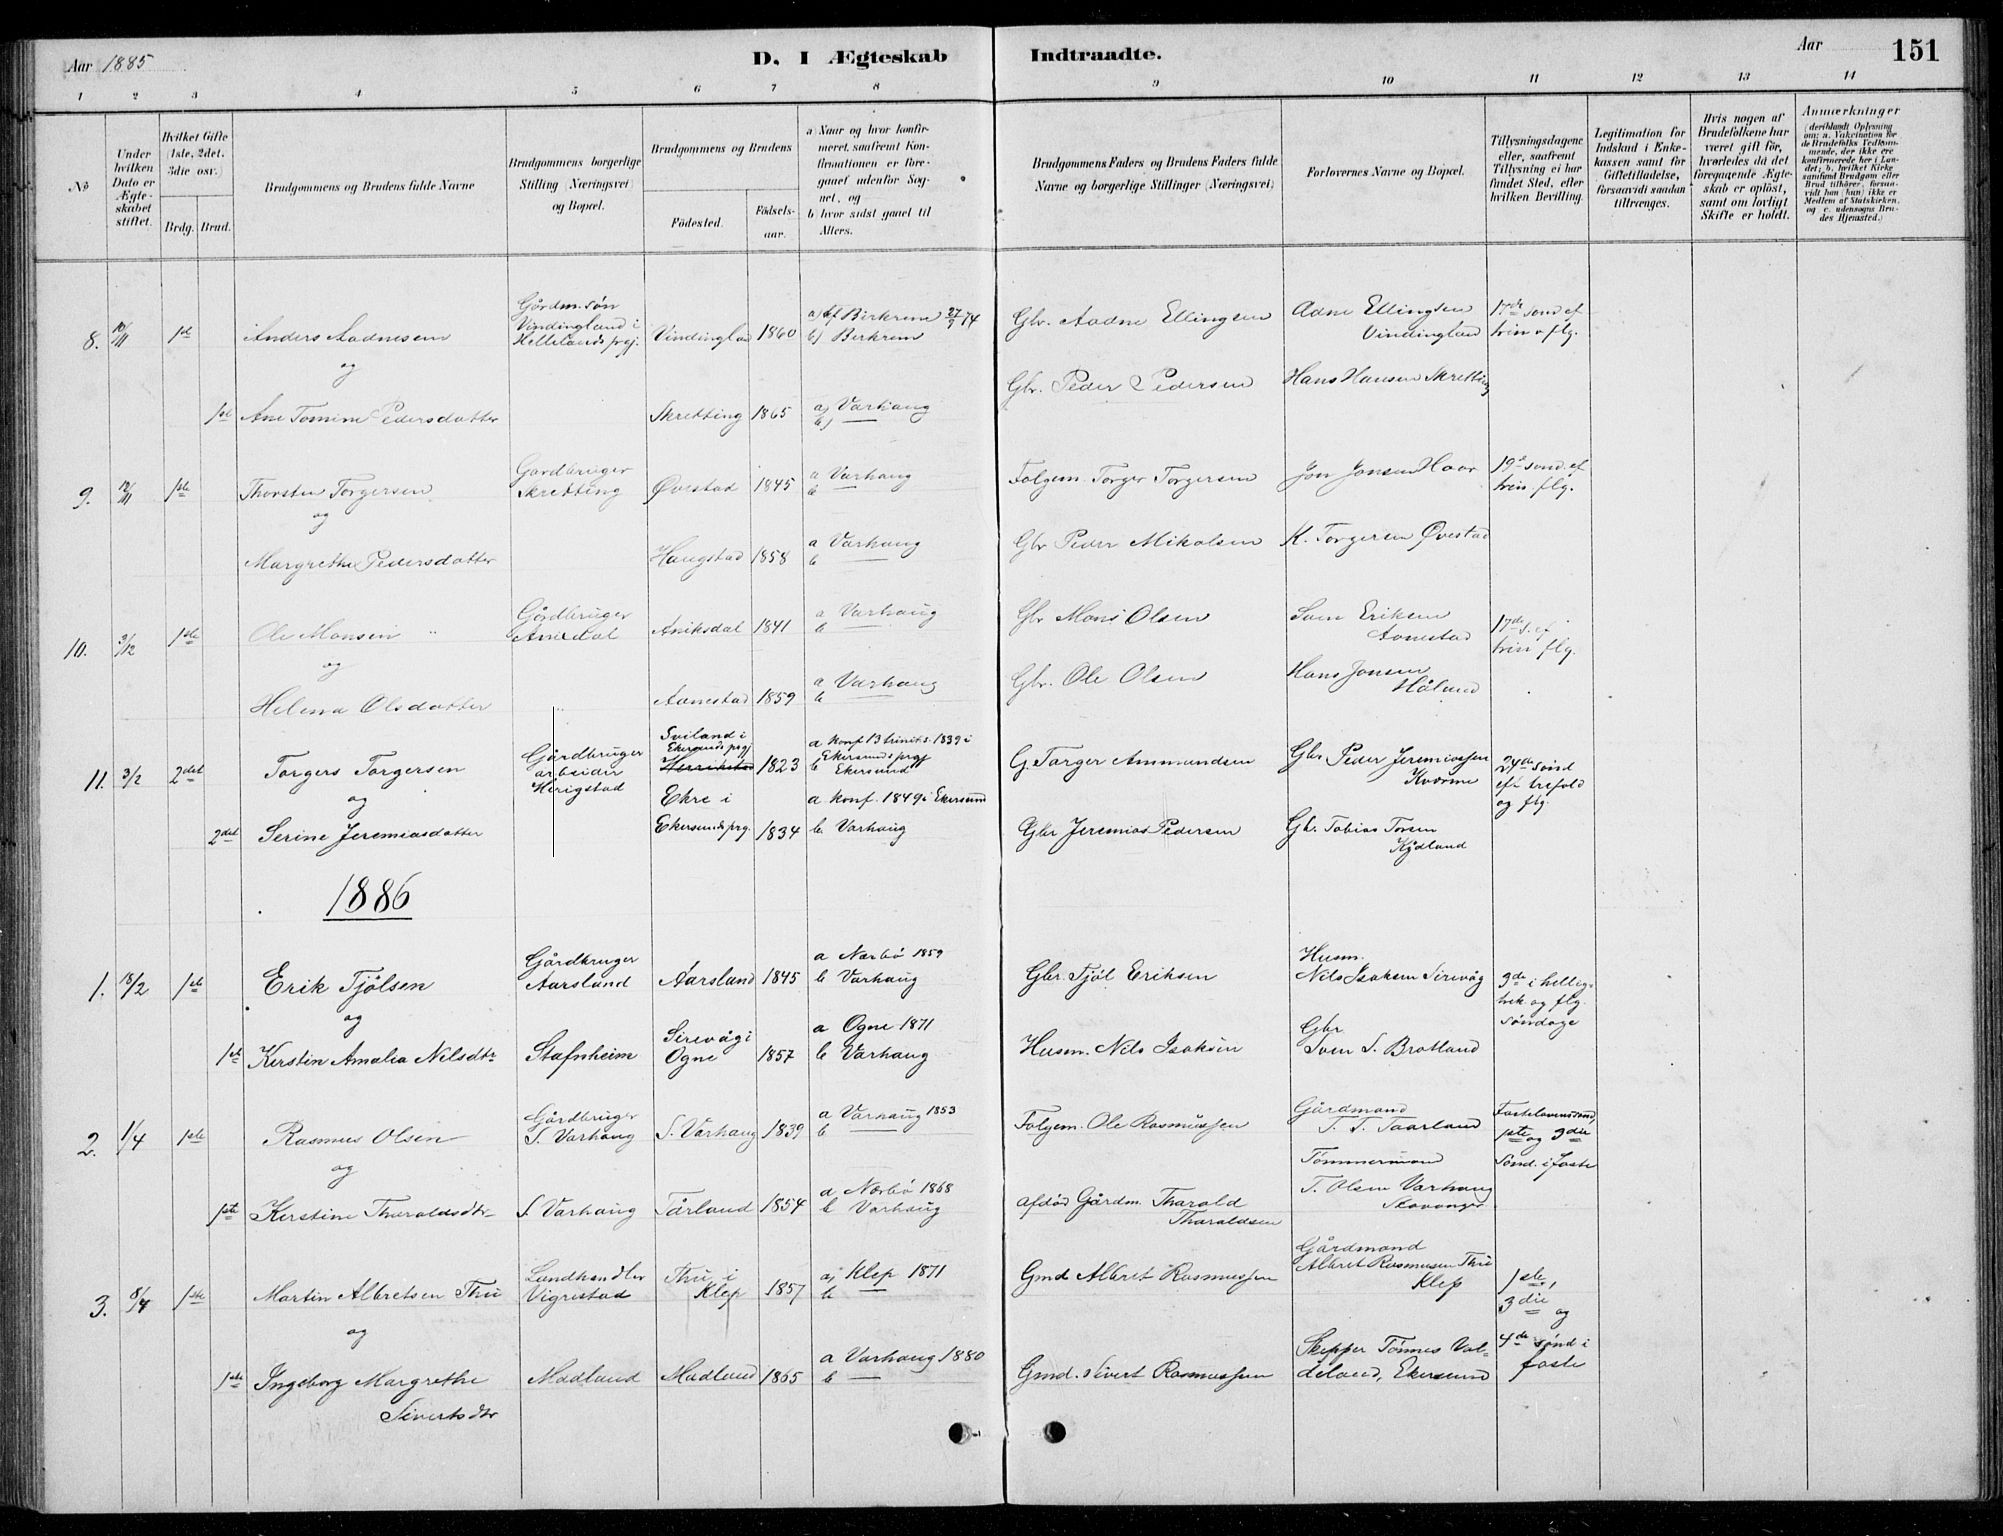 Aar 1885
D. I Ægteskab
Indtraadte.
Aar
151
1 2 3 4 5 6 7 8 9 10 11 12 13 14
No
Under hvilken Dato er Ægteskabet stiftet.
Hvilket Gifte (1ste, 2det, 3die osv.)
Brdg. Brud.
Brudgommens og Brudens fulde Navne
Brudgommens borgerlige Stilling (Næringsvei) og Bopæl.
Brudgommens og Brudens
Födested.
Födselsaar.
a Naar og hvor konfirmeret, saafremt Konfirmationen er foregaaet udenfor Sognet, og
b hvor sidst gaaet til Alters.
Brudgommens Faders og Brudens Faders fulde Navne og borgerlige Stillinger (Næringsvei)
Forlovernes Navne og Bopæl.
Tillysningsdagene eller, saafremt Tillysning ei har fundet Sted, efter hvilken Bevilling.
Legitimation for Indskud i Enkekassen samt for Giftetilladelse, forsaavidt saadan tiltrænges.
Hvis nogen af Brudefolkene har været gift för, hvorledes da det foregaaende Ægteskab er oplöst, samt om lovligt Skifte er holdt.
Anmærkninger
(deriblandt Oplysning om: a. Vakcination for de Brudefolks Vedkommende, der ikke ere konfirmerede her i Landet; b. hvilket Kirkesamfund Brudgom eller Brud tilhörer, forsaavidt han (hun) ikke er Medlem af Statskirken, og c. udensogns Brudes Hjemsted.)
8. 10/11 1ste Anders Aadnesen
Gårdm. søn
Vindingland i
Hellelands prgj.
Vindingland 1860
a) Birkrem 27/9 74
b) Birkrem
Gbr. Aadne Ellingsen
Adne Ellingsen
Vindingland
17de sønd ef
trin o. flg.
og
1ste Ane Tomine Pedersdatter
Skretting 1865
a) Varhaug
b) —
Gbr. Peder Pedersen
Hans Hansen Skretting
9. 12/11 1ste Thorsten Torgersen
Gårdbruger
Skretting
Øvestad 1845
a Varhaug
b —
Folgem. Torger Torgersen
Jon Jonsen Haar
19de sønd. ef
trin. flg.
og
Margrethe Pedersdatter
Haugstad 1858
a Varhaug
b —
Gbr Peder Mikalsen
K. Torgersen Øvestad
10. 3/12 1ste Ole Monsen
Gårdbruger
Anisdal
Aniksdal 1841
a Varhaug
b —
Gbr Mons Olsen
Sven Eriksen
Aanestad
17de s. ef
trin flg.
og
Helena Olsdatter
Aanestad 1859
a Varhaug
b —
Gbr. Ole Olsen
Hans Jonsen
Håland
11. 3/2 2det Torgers Torgersen
Gårdbruger
arbeider
Hårigstad
Sviland i
Ekersunds prgj
Herrikstad 1823
a konf 13 trinits. 1839 i
Ekersunds prgj
b Ekersund
G. Torger Ammundsen
Gbr Peder Jeremiassen
Kværme
24de sønd
eft. trefold
og flg.
og
2det Serine Jeremiasdatter
Ekre i
Ekersunds prg. 1834
a konf. 1849 i Ekersund
b. Varhaug
Gbr Jeremias Pedersen
Gb. Tobias Torsen
Kydland
1886
1. 18/2 1ste Erik Tjølsen
Gårdbruger
Aarsland
Aarsland 1845
a Nærbö 1859
b Varhaug
Gbr. Tjøl Eriksen
Husm.
Nils Isaksen Sirevåg
3de i hellig
trek og flg.
søndage
og
1ste Kerstin Amalia Nilsdtr
Stafnheim
Sirevåg i
Ogne 1857
a Ogne 1871
b Varhaug
Husm. Nils Isaksen
Gbr
Sven S. Brotland
2. 1/4 1ste Rasmus Olsen
Gårdbruger
S. Varhaug
S. Varhaug 1839
a Varhaug 1853
b —
Folgem. Ole Rasmussen
Gårdmand
T. T. Taarland
Fastelavenssønd,
1ste og 3die
Sønd. i faste
og
1ste Kerstine Tharaldsdtr
S. Varhaug
Tårland 1854
a Nærbö 1868
b Varhaug
afdød Gårdm. Tharald
Tharaldsen
Tømmermand
T. Olsen Varhaug
Stavanger
3. 8/4 1ste Martin Albretsen Thu
Landhandler
Vigrestad
Thu i
Klep 1857
a) Klep 1871
b —
Gmd Albret Rasmussen
Gårdmand
Albret Rasmusen Thu
Klep
1ste,
3die og
4de sønd i
faste
og
1ste Ingeborg Margrethe
Sivertsdtr
Madland
Madland 1865
a Varhaug 1880
b —
Gmd. Sivert Rasmussen
Skipper Tønnes Valdeland, Ekersund